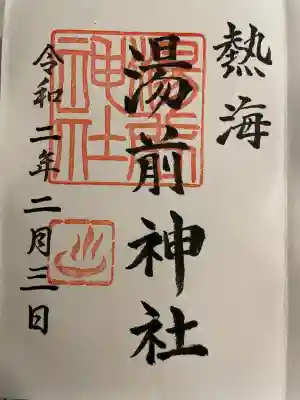 熱海
湯前神社
湯前神社
令和二年二月三日